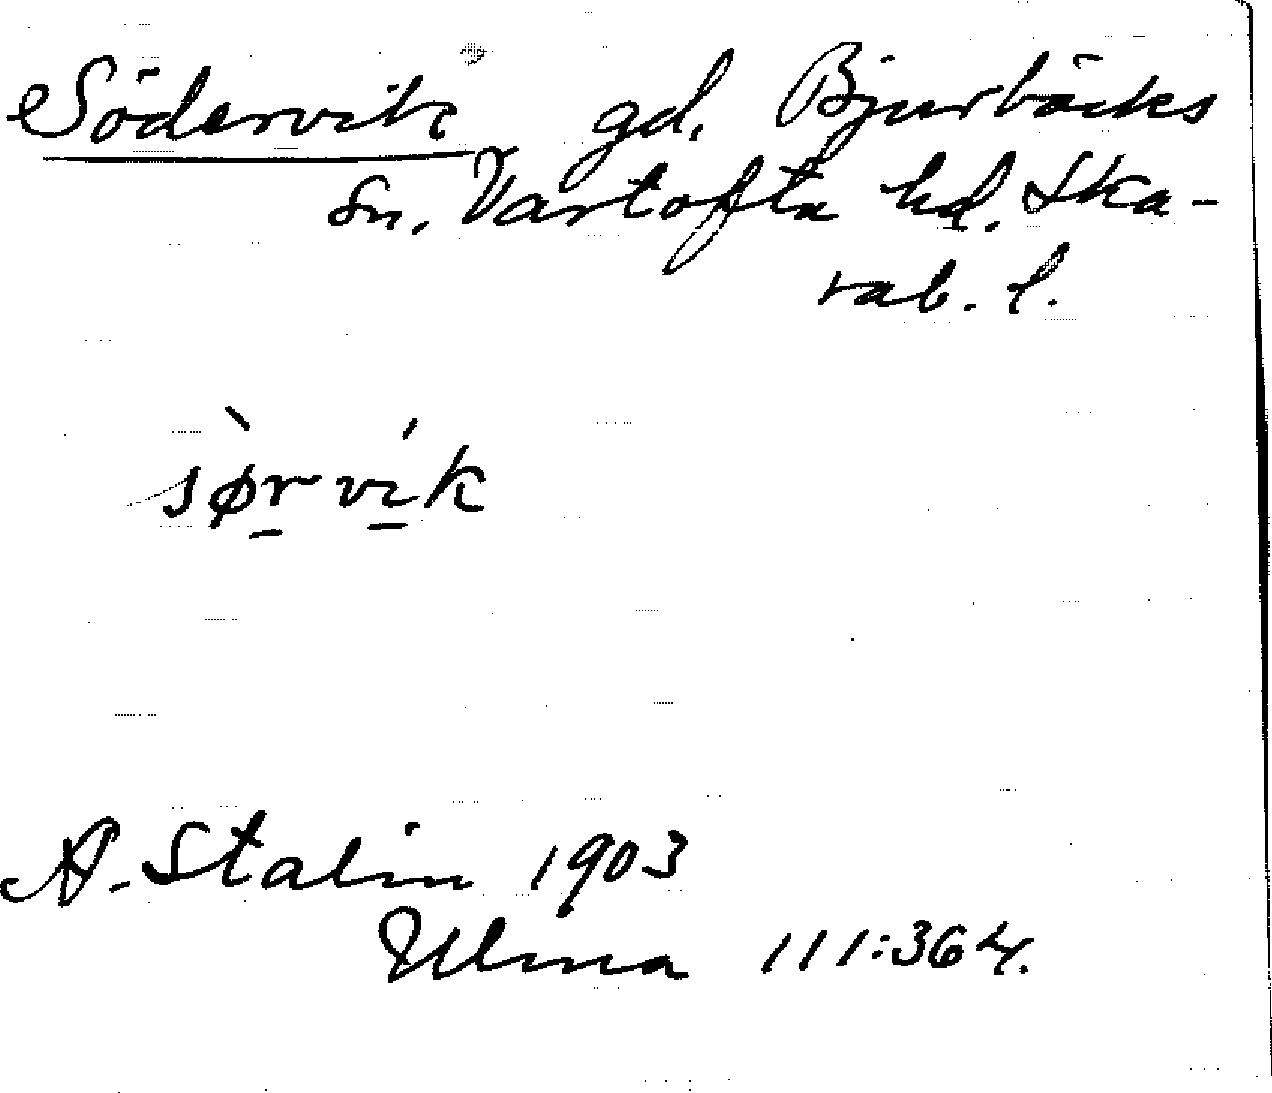 Södervik gd. Bjurbäcks
sn. Vartofta hd. Ska-
rab. l.
sørvik
A. Stalin 1903
Ulma 111:364.